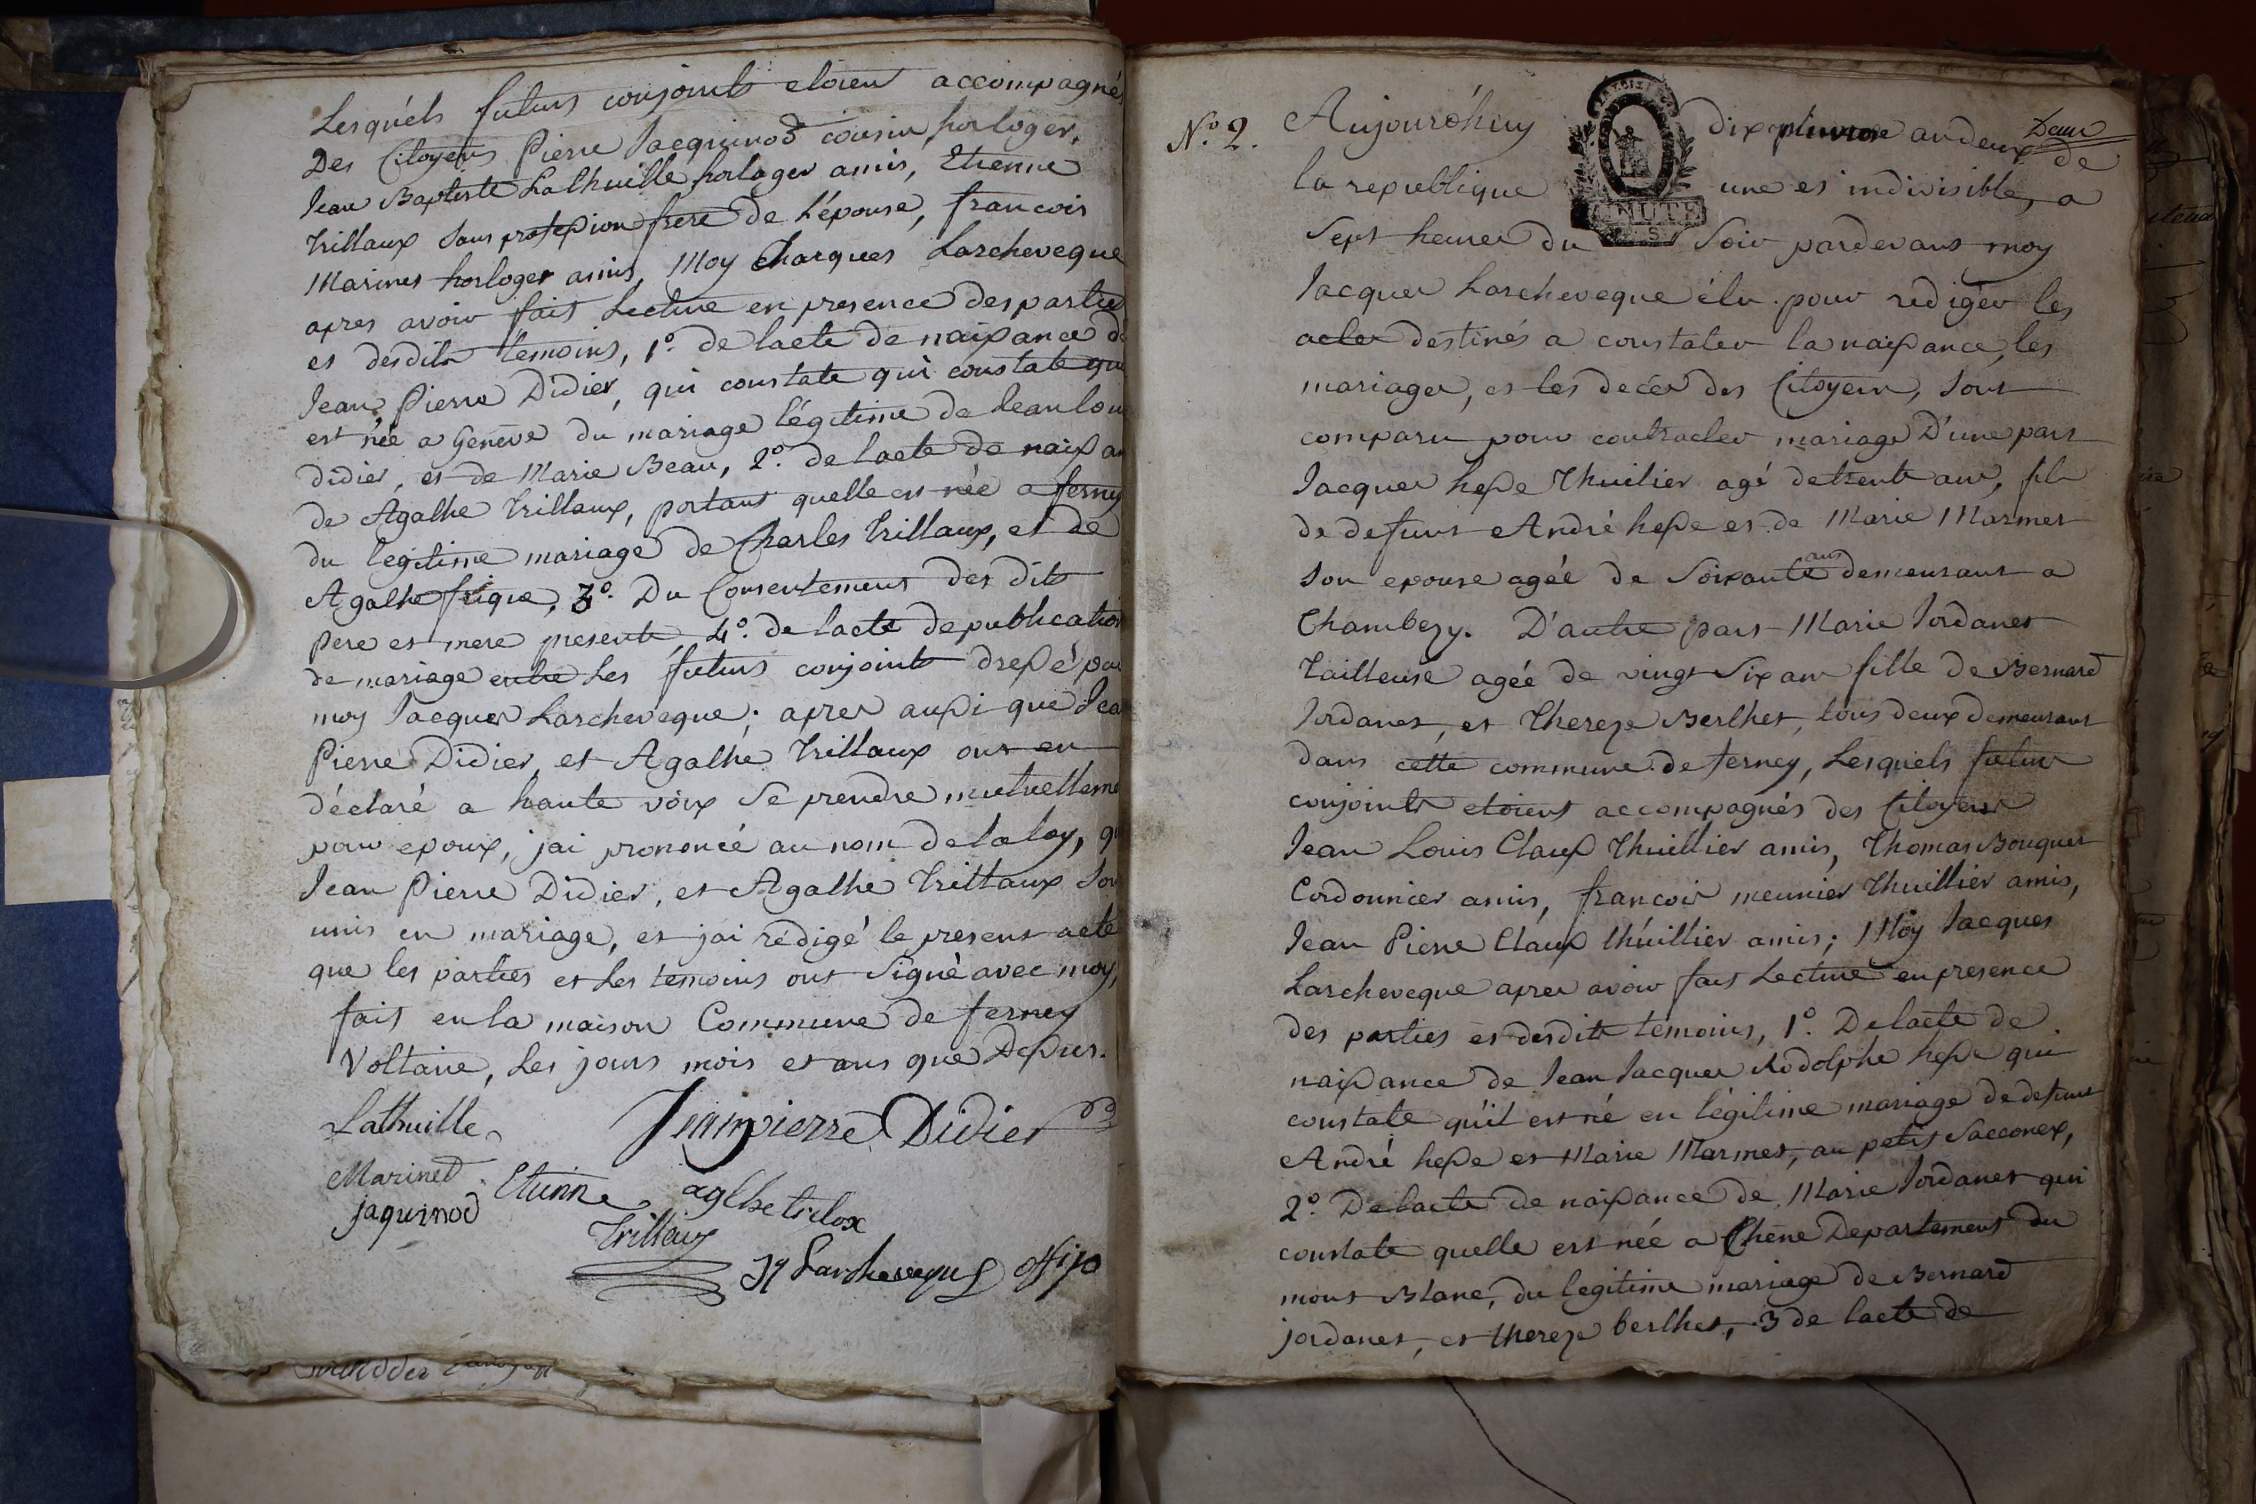 Lesquéls futurs conjoints etoien accompagnés
Des Citoyens Pierre Jacquinod cousin horloger,
Jean Baptiste Lathuille horloger amis, Etienne
trillaux sans profession frere de L'épouse, francois
Marinet horloger amis, Moy Charques Larcheveque
apres avoir fait Lecture en presence des parties
et desdits temoins, 1º. de lacte de naissance de
Jean Pierre Didier, qui constate qui constate que
est née a Genève du mariage légitime de Jean loui
didier, et de Marie Beau, 2º. de lacte de naissan
de Agathe trillaux, portant quelle est née a ferney
du legitime mariage de Charles trillaux, et de
Agathe frique, 3º. Du Consentement des dits
Pere et mere presents, 4º. de lacte de publication
de mariage entre Les futurs conjoints dressé par
moy Jacques Larcheveque; apres aussi que Jean
Pierre Didier et Agathe trillaux ont eu
déclaré a haute voix Se prendre mutuelleme
pour epoux, jai prononcé au nom de la loy, que
Jean Pierre Didier, et Agathe trillaux Son
unis en mariage, et jai rédigé le present acte
que les parties et Les temoins ont Signé avec moy,
fait en la maison Commune de ferney
Voltaire, Les jours mois et ans que Dessus.
Lathuille Jeanpierre Didier
Marinet Etienne agthe trelox
jaquinod
trilleux
Jq Larcheveque offi po
Nº. 2. Aujourd'huy dix pluviose an deux Deux de
la republique une et indivisible, a
Sept heures du Soir pardevant moy
MINUTE
Jacques Larcheveque élu pour rédiger les
actes destinés a constater la naissance, les
mariages, et les decés des Citoyens, Sont
comparu pour contracter mariage D'une part
Jacques hesse thuilier agé de trente ans, fils
de defunt André hesse et de Marie Marmet
Son epouse agée de Soixante ans demeurant a
Chambezy. D'autre part Marie Jordanet
tailleuse agée de vingt Six ans fille de Bernard
Jordanet, et thereze Berthet, tous deux demeurant
dans cette commune de ferney, Lesquels futurs
conjoints etoient accompagnés des Citoyens
Jean Louis Claux thuillier amis, Thomas Bouquet
Cordonnier amis, francois meunier thuillier amis,
Jean Pierre Claux thuillier amis; Moy Jacques
Larcheveque apres avoir fait Lecture en presence
des parties et desdits temoins, 1º. De lacte de
naissance de Jean Jacques Rodolphe hesse qui
constate qu'il est né en légitime mariage de defunt
André hesse et Marie Marmet, au petit Sacconex,
2º. De lacte de naissance de Marie Jordanet qui
constate quelle est née a Chêne Departement du
mont Blanc, du legitime mariage de Bernard
jordanet, et thereze berthet, 3 de lacte de